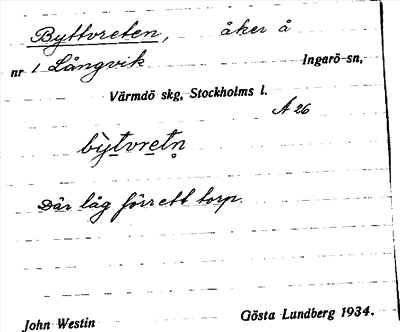 Byttvreten, åker å
nr 1 Långvik Ingarö sn,
Värmdö skg, Stockholms l.
A 26
bỳtvretn̥
Där låg förr ett torp.
John Westin Gösta Lundberg 1934.